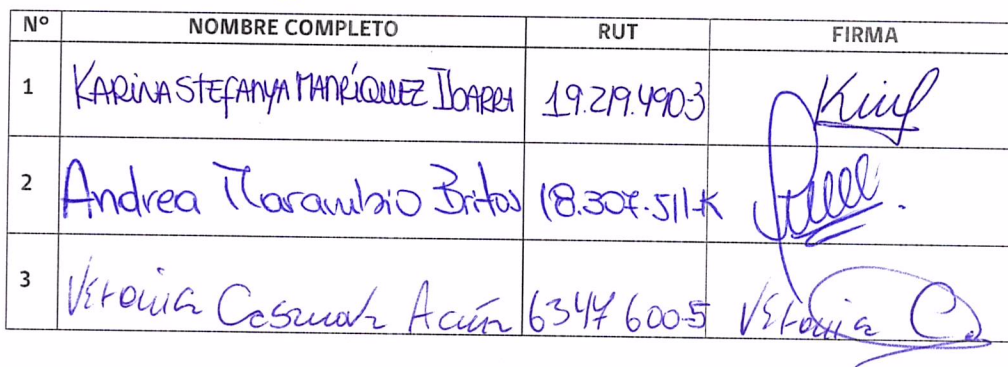 Nº NOMBRE COMPLETO RUT FIRMA
1 KARINA STEFANYA MANRÍQUEZ IBARRA 19.219.490-3
2 Andrea Marambio Britos 18.307.511-K
3 Verónica Acuña 6347600-5 Verónica C.